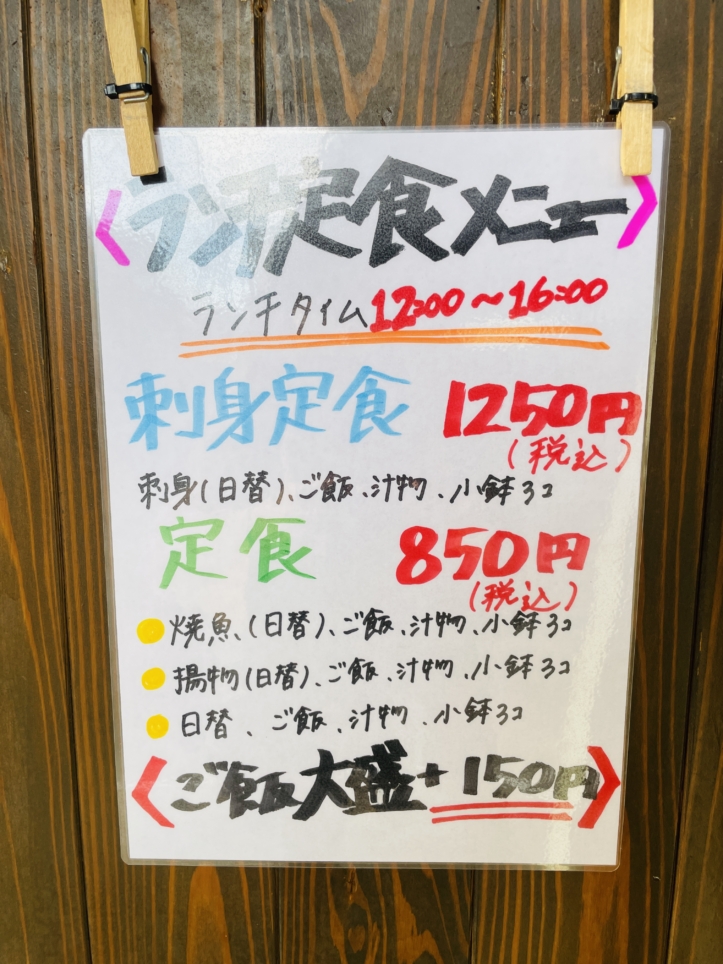 〈ランチ定食メニュー〉
ランチタイム12:00～16:00
刺身定食 1250円
(税込)
刺身(日替)、ご飯、汁物、小鉢3コ
定食 850円
(税込)
焼魚、(日替)、ご飯、汁物、小鉢3コ
揚物(日替)、ご飯、汁物、小鉢3コ
日替、ご飯、汁物、小鉢3コ
〈ご飯大盛+150円〉